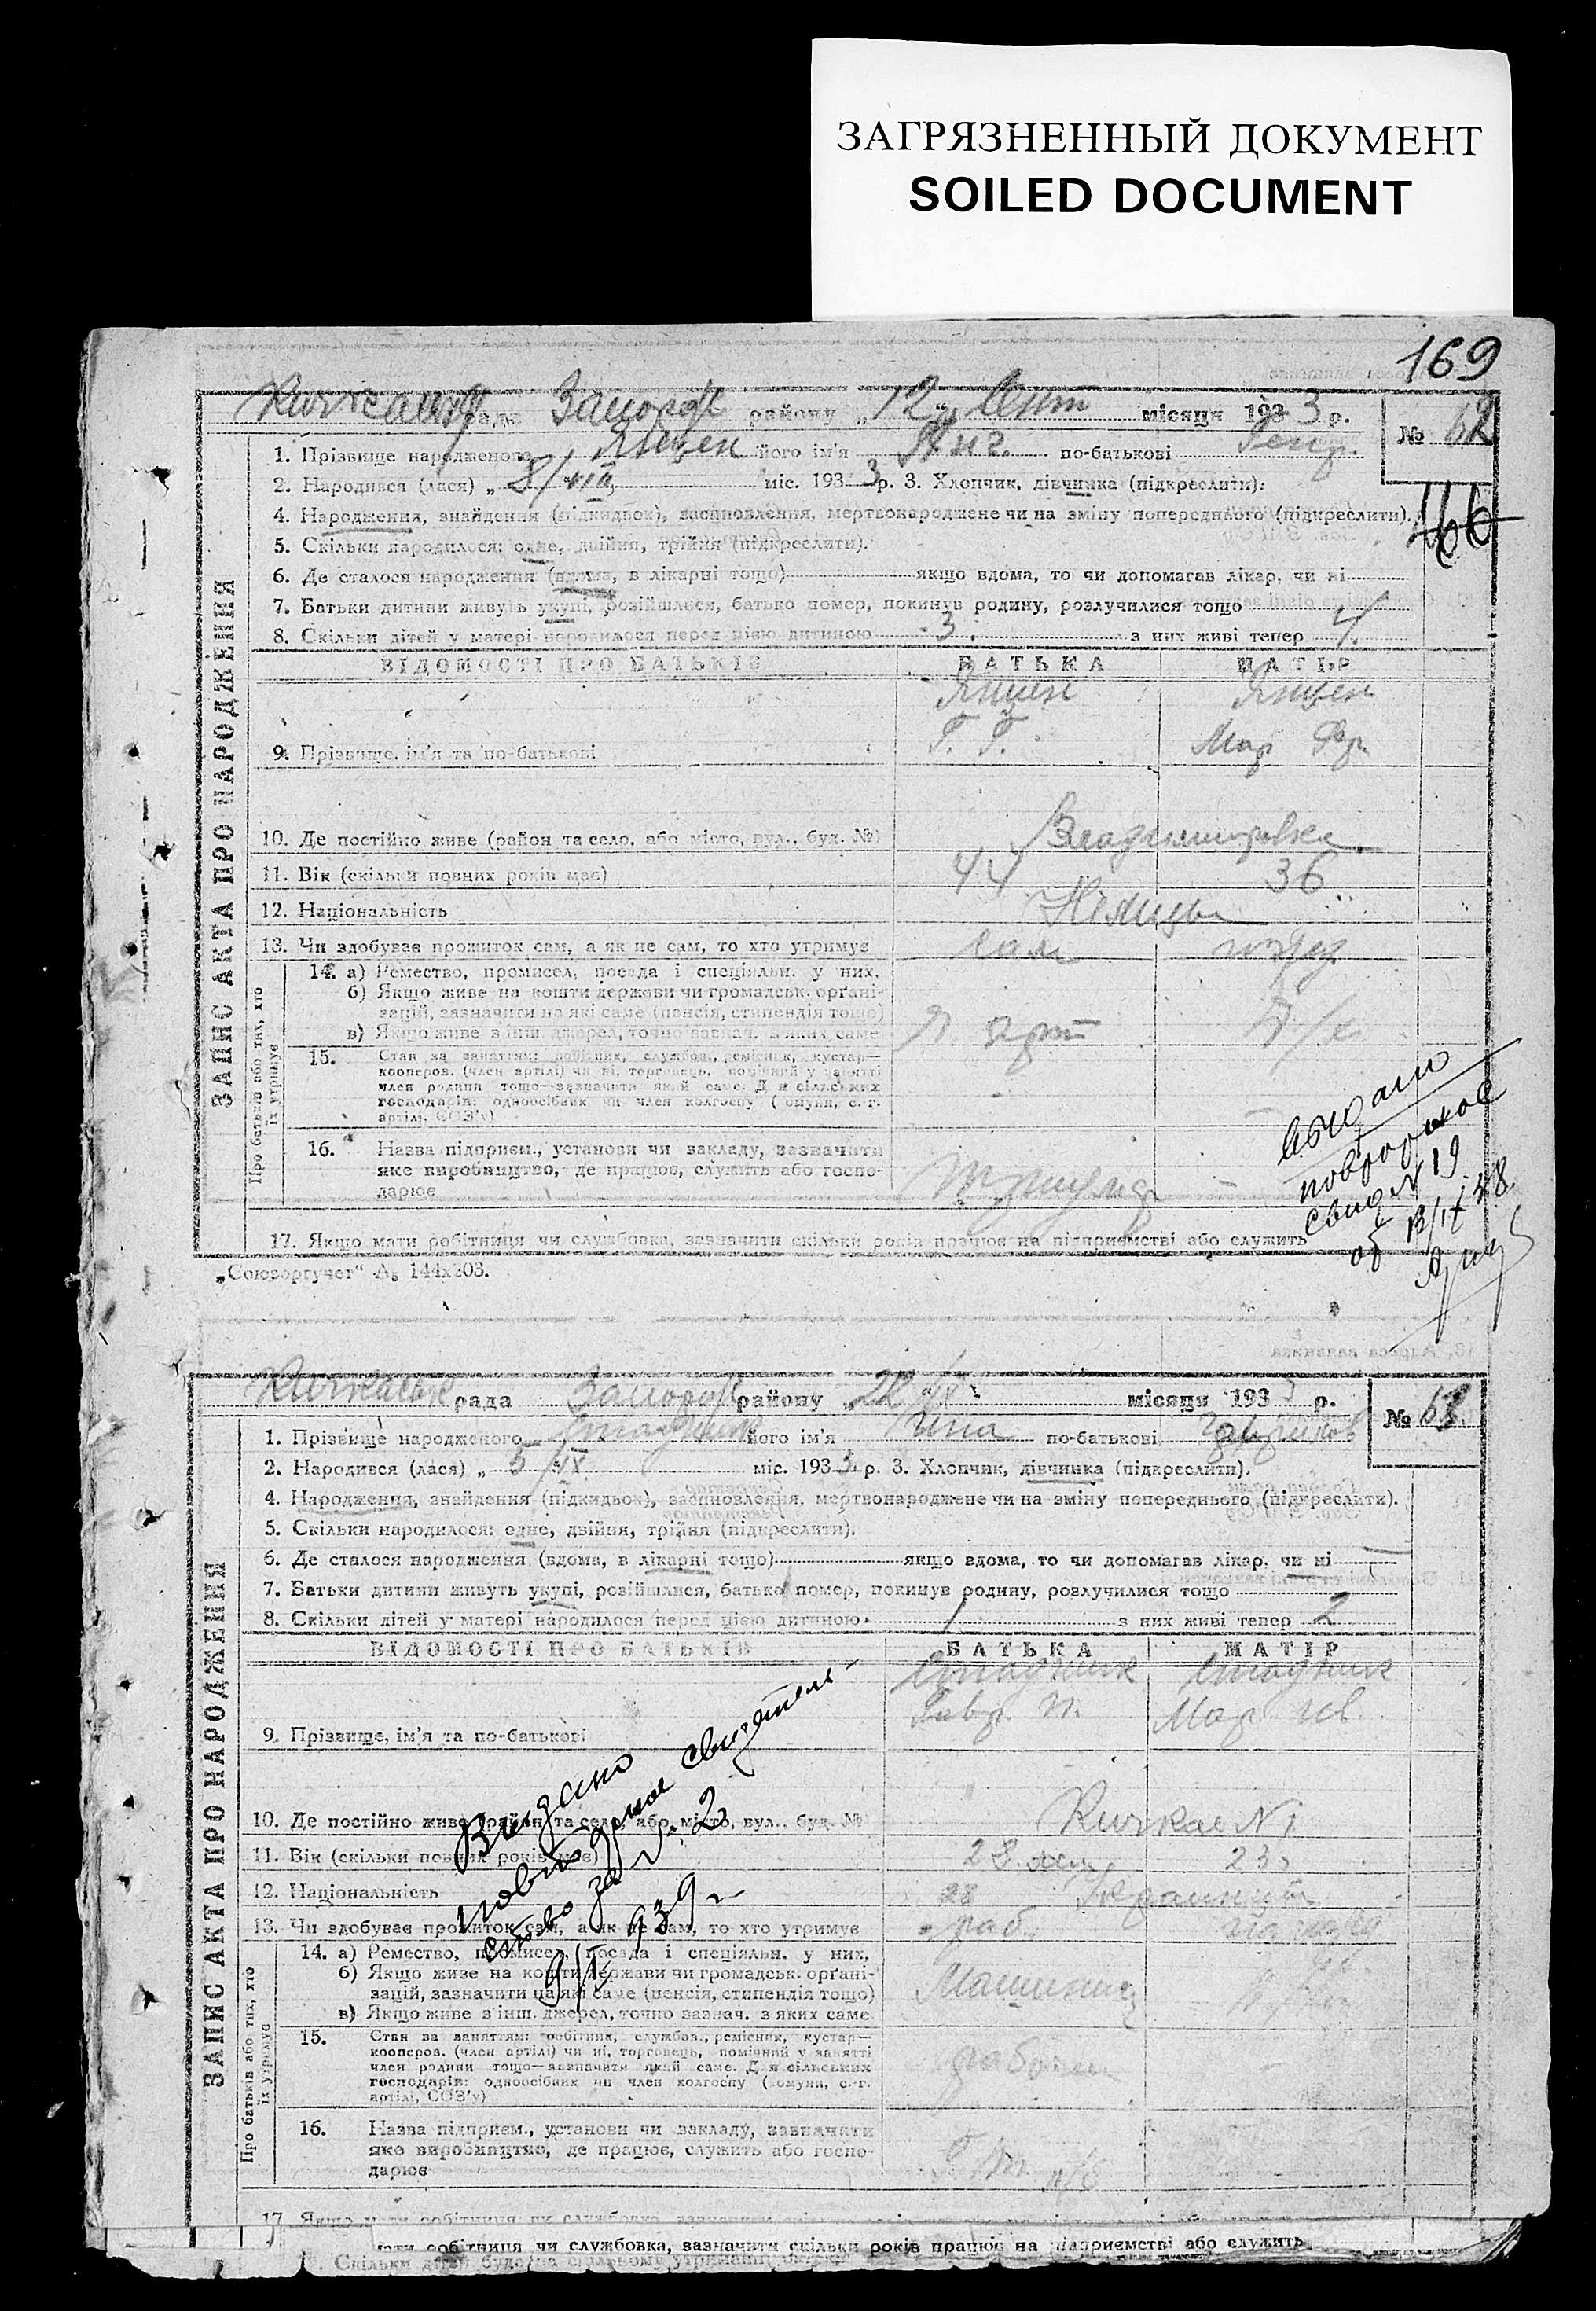 ЗАГРЯЗНЕННЫЙ ДОКУМЕНТ
SOILED DOCUMENT
169
рада Запорож району „12“ місяця 1933 р.
№ 62
1. Прізвище народженого Янцен його ім'я по-батькові Генр.
2. Народився (лася) „8/VIII міс. 1933 р. 3. Хлопчик, дівчинка (підкреслити).
4. Народження, знайдення (підкидьок), засиновлення, мертвонароджене чи на зміну попереднього (підкреслити).
466
5. Скільки народилося: одне, двійня, трійня (підкреслити).
6. Де сталося народження (вдома, в лікарні тощо) якщо вдома, то чи допомагав лікар, чи ні
7. Батьки дитини живуть укупі, розійшлися, батько помер, покинув родину, розлучилися тощо
8. Скільки дітей у матері народилося перед цією дитиною 3 з них живі тепер 4.
ВІДОМОСТІ ПРО БАТЬКІВ БАТЬКА МАТІР
Янцен Янцен
9. Прізвище, ім'я та по-батькові Г. Г. Мар
10. Де постійно живе (район та село, або місто, вул., буд. №)
11. Вік (скільки повних років має) 44 36
12. Національність Німці
13. Чи здобуває прожиток сам, а як не сам, то хто утримує сам
14. а) Ремество, промисел, посада і спеціяльн. у них,
б) Якщо живе на кошти держави чи громадськ. орґані-
зацій, зазначити на які саме (пенсія, стипендія тощо)
в) Якщо живе з інш. джерел, точно зазнач. з яких саме
15. Стан за заняттям: робітник, службов., ремісник, кустар—
кооперов. (член артілі) чи ні, торговець, помічний у занятті
член родини тощо—зазначити який саме. Для сільських
господарів: одноосібник чи член колгоспу (комуни, с.-г.
артілі, СОЗ'у)
16. Назва підприєм., установи чи закладу, зазначити
яке виробництво, де працює, служить або госпо-
дарює
17. Якщо мати робітниця чи службовка, зазначити скільки років працює на підприємстві або служить
ЗАПИС АКТА ПРО НАРОДЖЕННЯ
Про батьків або тих, хто
їх утримує
выдано
повторное
свид N 19
„Союзоргучет“ 144х203.
рада Запорож району „22 IX місяця 1933 р.
№ 63
1. Прізвище народженого його ім'я Нина по-батькові
2. Народився (лася) „5 IX міс. 1933 р. 3. Хлопчик, дівчинка (підкреслити).
4. Народження, знайдення (підкидьок), засиновлення, мертвонароджене чи на зміну попереднього (підкреслити).
5. Скільки народилося: одне, двійня, трійня (підкреслити).
6. Де сталося народження (вдома, в лікарні тощо) якщо вдома, то чи допомагав лікар, чи ні
7. Батьки дитини живуть укупі, розійшлися, батько помер, покинув родину, розлучилися тощо
8. Скільки дітей у матері народилося перед цією дитиною 1 з них живі тепер 2
ВІДОМОСТІ ПРО БАТЬКІВ БАТЬКА МАТІР
9. Прізвище, ім'я та по-батькові Гавр. Мар
10. Де постійно живе (район та село, або місто, вул., буд. №) Кичкас N 1
11. Вік (скільки повних років має) 28 23
12. Національність
13. Чи здобуває прожиток сам, а як не сам, то хто утримує раб.
14. а) Ремество, промисел, посада і спеціяльн. у них,
б) Якщо живе на кошти держави чи громадськ. орґані-
зацій, зазначити на які саме (пенсія, стипендія тощо)
в) Якщо живе з інш. джерел, точно зазнач. з яких саме
Машинист
15. Стан за заняттям: робітник, службов., ремісник, кустар—
кооперов. (член артілі) чи ні, торговець, помічний у занятті
член родини тощо—зазначити який саме. Для сільських
господарів: одноосібник чи член колгоспу (комуни, с.-г.
артілі, СОЗ'у)
16. Назва підприєм., установи чи закладу, зазначити
яке виробництво, де працює, служить або госпо-
дарює
17. Якщо мати робітниця чи службовка, зазначити
ЗАПИС АКТА ПРО НАРОДЖЕННЯ
Про батьків або тих, хто
їх утримує
Выдано
повторное свидетель-
ство за № 2
939 г
мати робітниця чи службовка, зазначити скільки років працює на підприємстві або служить